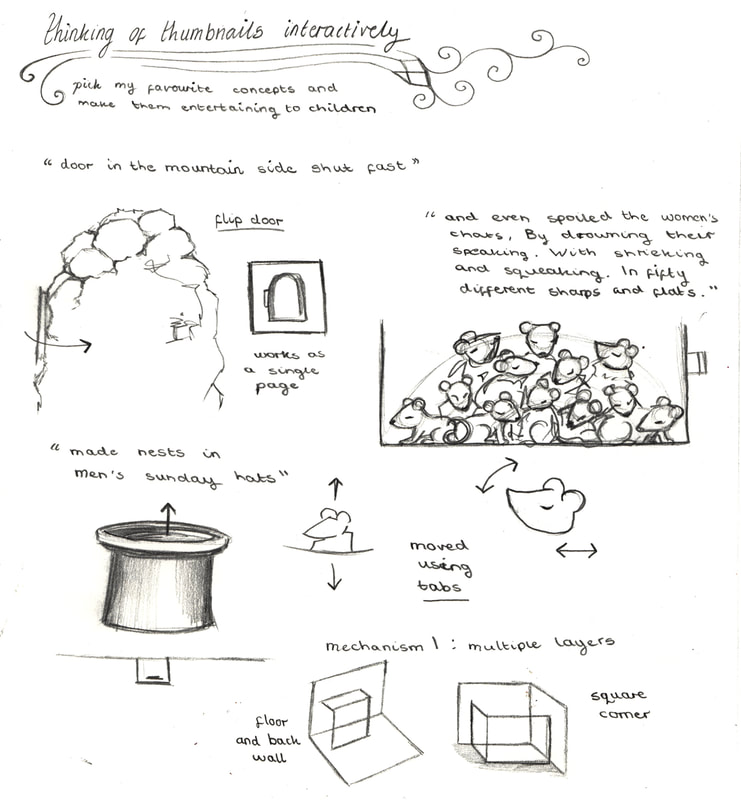 thinking of thumbnails interactively
pick my favourite concepts and
make them entertaining to children
“ door in the mountain side shut fast ”
flip door
works as
a single
page
“ and even spoiled the women's
chats, By drowning their
speaking. With shrieking
and squeaking. In fifty
different sharps and flats. ”
“ made nests in
men's sunday hats ”
moved
using
tabs
mechanism 1 : multiple layers
floor
and back
wall
square
corner